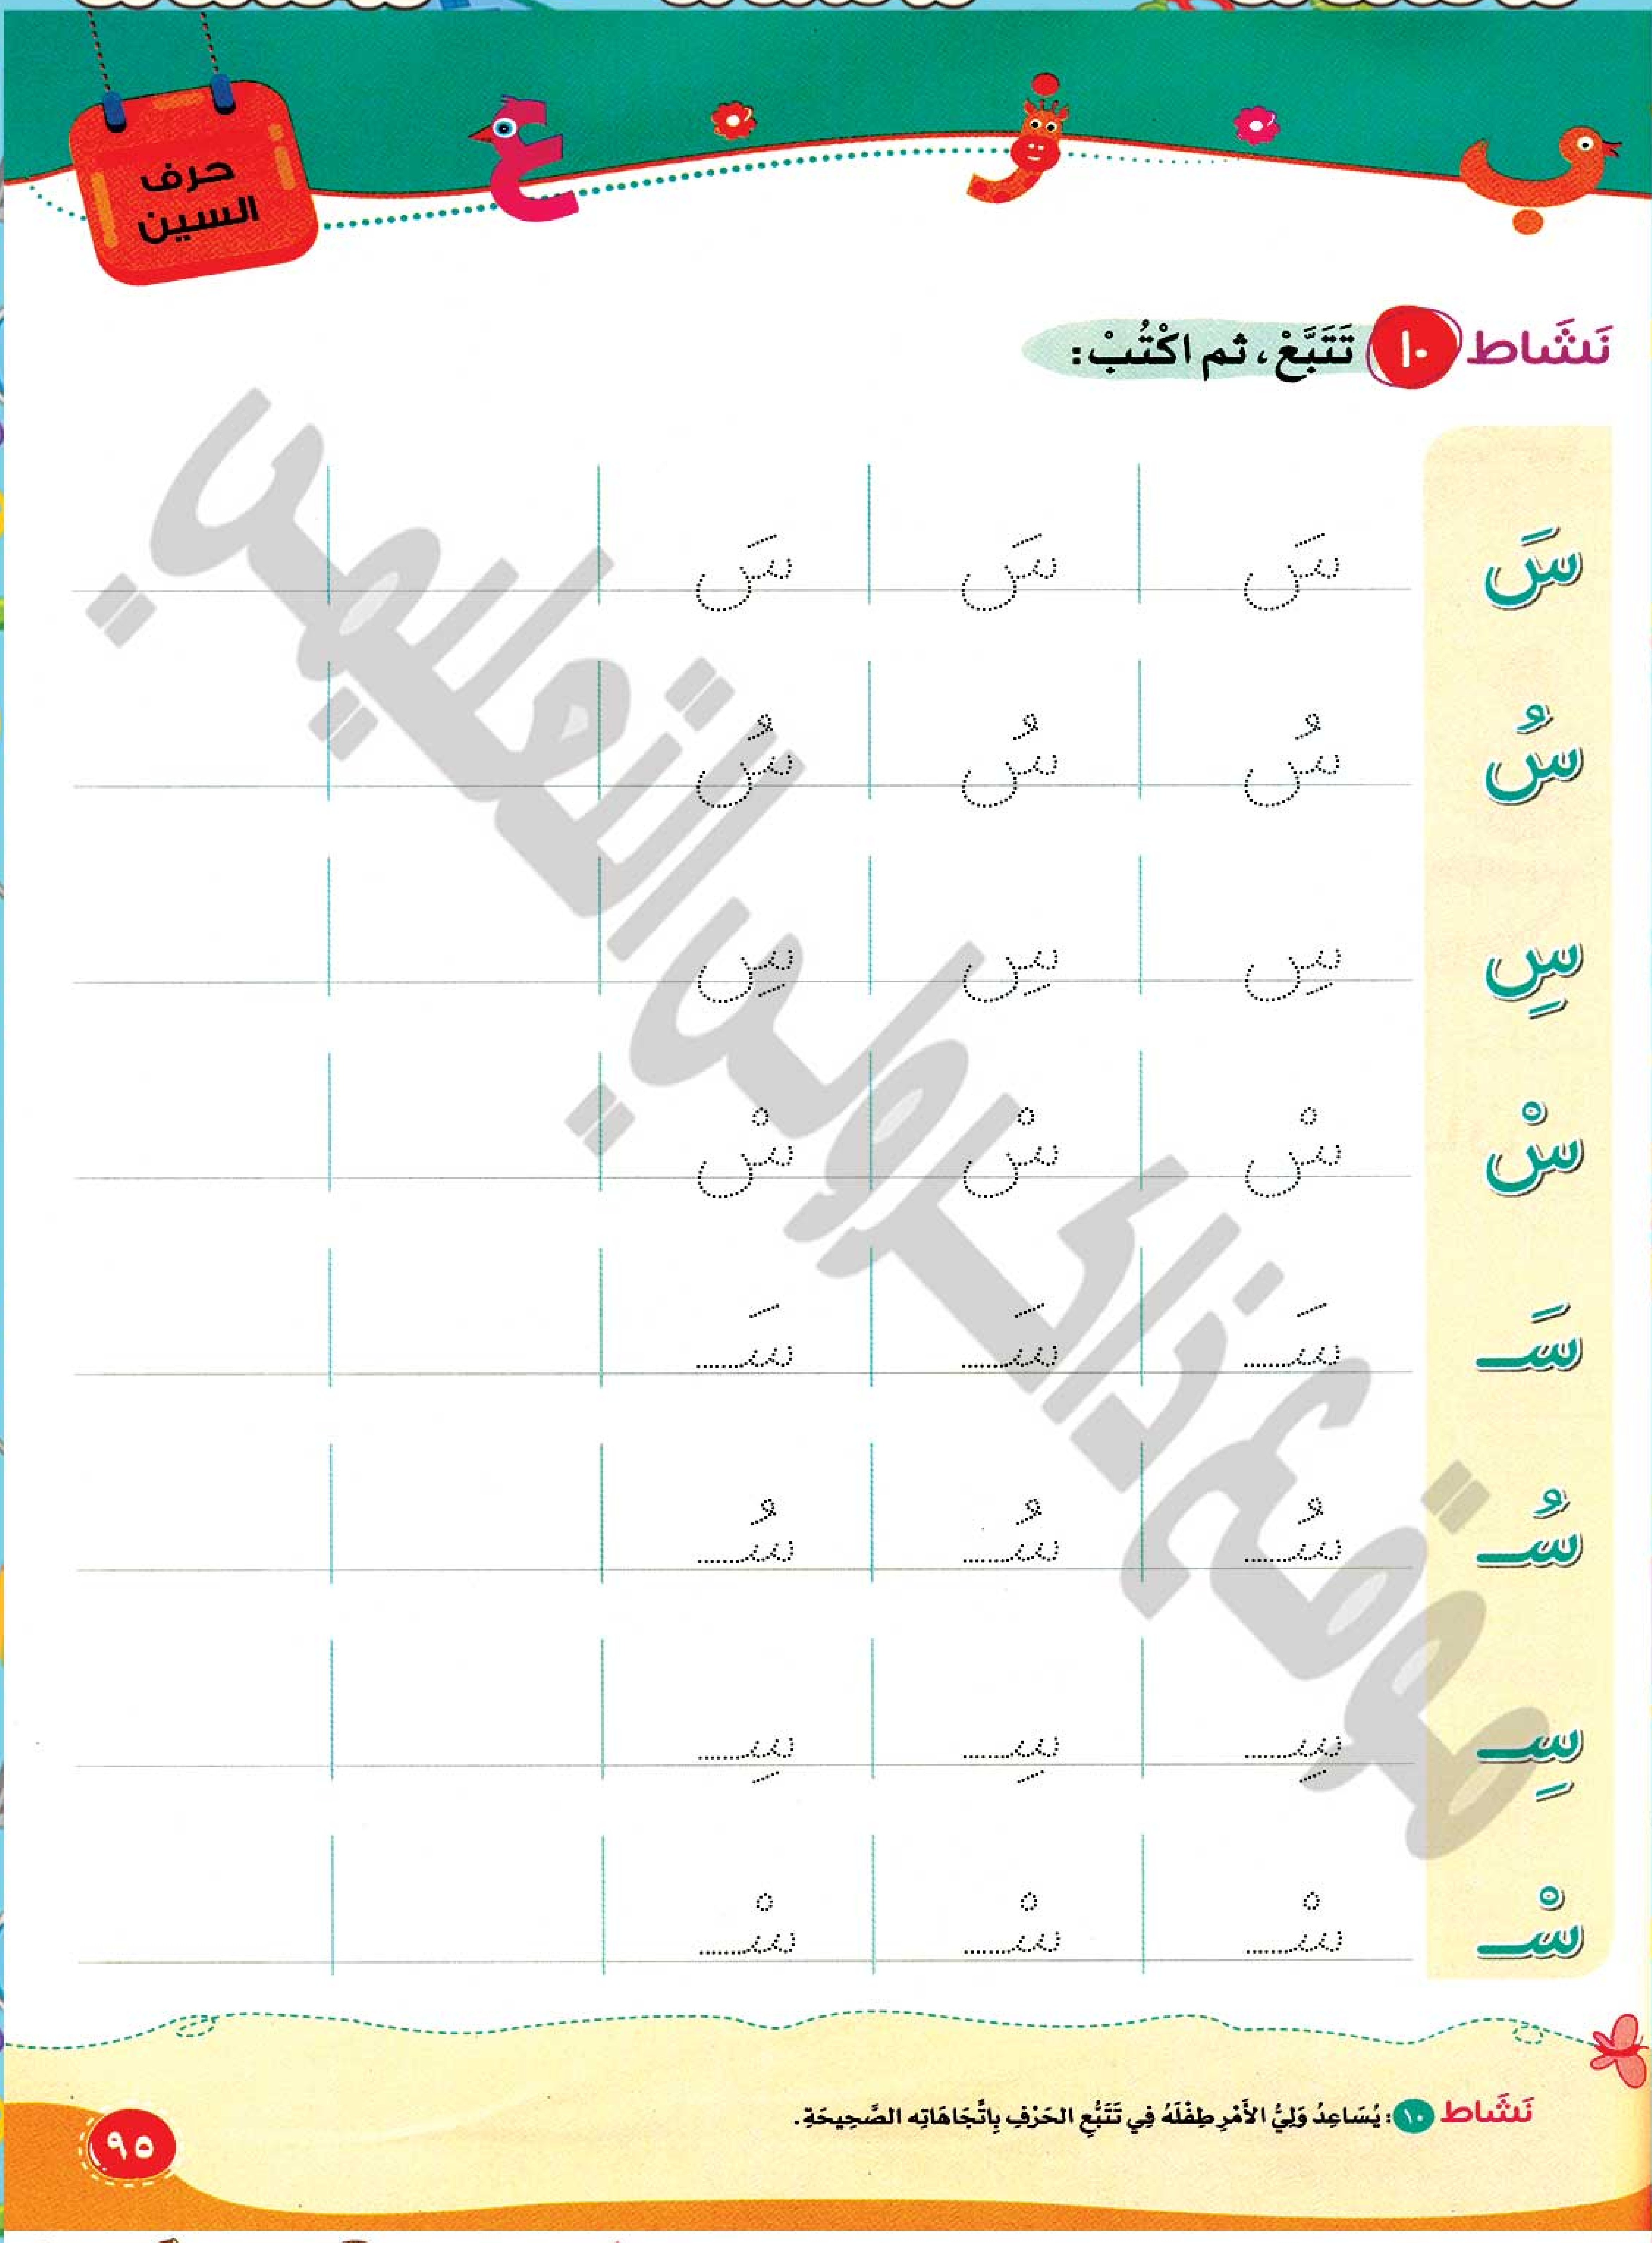 حرف
السين
نَشَاط ١٠ تَتَبَّعْ، ثم اكْتُبْ:
سَ سَ سَ سَ
سُ سُ سُ سُ
سِ سِ سِ سِ
سْ سْ سْ سْ
سَـ سَـ سَـ سَـ
سُـ سُـ سُـ سُـ
سِـ سِـ سِـ سِـ
سْـ سْـ سْـ سْـ
موقع ذاكرولي التعليمي
نَشَاط ١٠: يُسَاعِدُ وَلِيُّ الأَمْرِ طِفْلَهُ فِي تَتَبُّعِ الحَرْفِ بِاتِّجَاهَاتِه الصَّحِيحَةِ.
٩٥